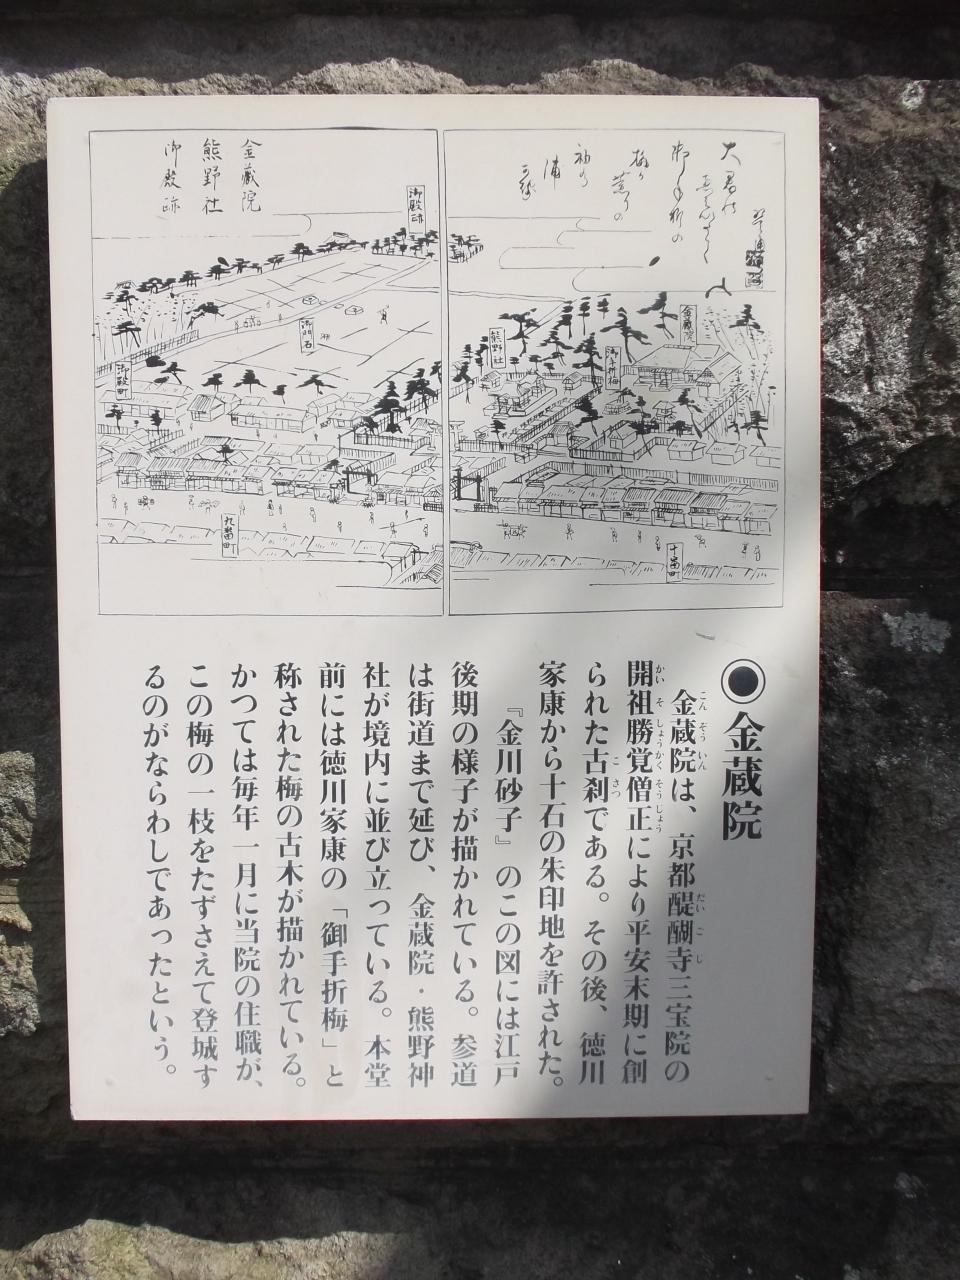 金蔵院
熊野社
御殿跡
御殿跡
御門石
御殿町
九番町
熊野社
金蔵院
十番町
◉金蔵院
金蔵院は、京都醍醐寺三宝院の
開祖勝覚僧正により平安末期に創
られた古刹である。その後、徳川
家康から十石の朱印地を許された。
『金川砂子』のこの図には江戸
後期の様子が描かれている。参道
は街道まで延び、金蔵院・熊野神
社が境内に並び立っている。本堂
前には徳川家康の「御手折梅」と
称された梅の古木が描かれている。
かつては毎年一月に当院の住職が、
この梅の一枝をたずさえて登城す
るのがならわしであったという。
こんぞういん
だいごじ
かいそしょうかくそうじょう
こさつ